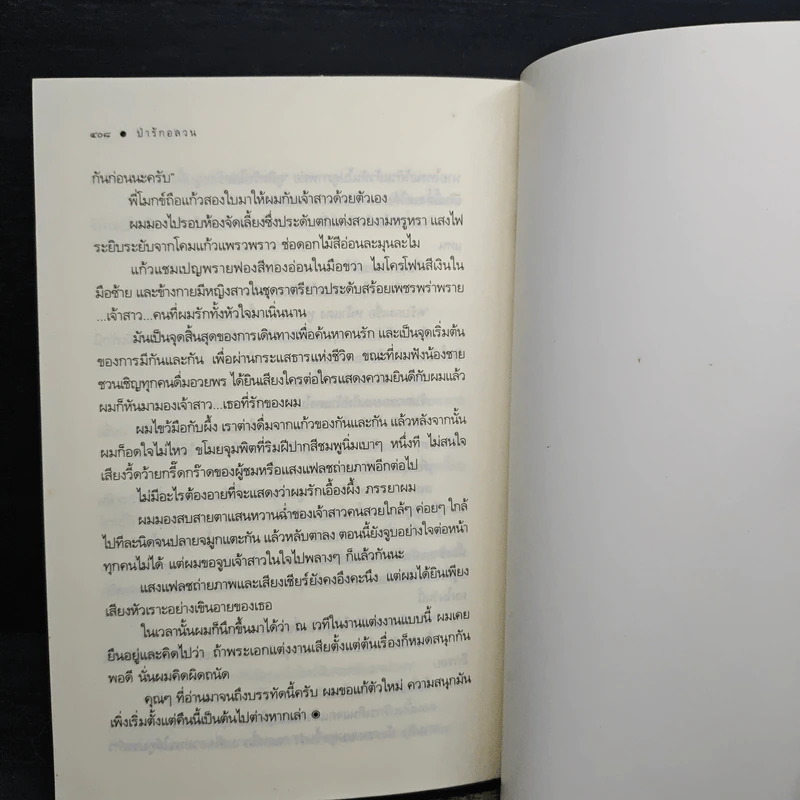 ๔๐๘ ● ป่ารักอลวน
กันก่อนนะครับ"
พี่โมกข์ถือแก้วสองใบมาให้ผมกับเจ้าสาวด้วยตัวเอง
ผมมองไปรอบห้องจัดเลี้ยงซึ่งประดับตกแต่งสวยงามหรูหรา แสงไฟ
ระยิบระยับจากโคมแก้วแพรวพราว ช่อดอกไม้สีอ่อนละมุนละไม
แก้วแชมเปญพรายฟองสีทองอ่อนในมือขวา ไมโครโฟนสีเงินใน
มือซ้าย และข้างกายมีหญิงสาวในชุดราตรียาวประดับสร้อยเพชรพร่าพราย
...เจ้าสาว...คนที่ผมรักทั้งหัวใจมาเนิ่นนาน
มันเป็นจุดสิ้นสุดของการเดินทางเพื่อค้นหาคนรัก และเป็นจุดเริ่มต้น
ของการมีกันและกัน เพื่อผ่านกระแสธารแห่งชีวิต ขณะที่ผมฟังน้องชาย
ชวนเชิญทุกคนดื่มอวยพร ได้ยินเสียงใครต่อใครแสดงความยินดีกับผมแล้ว
ผมก็หันมามองเจ้าสาว...เธอที่รักของผม
ผมไขว้มือกับผึ้ง เราต่างดื่มจากแก้วของกันและกัน แล้วหลังจากนั้น
ผมก็อดใจไม่ไหว ขโมยจุมพิตที่ริมฝีปากสีชมพูนิ่มเบาๆ หนึ่งที ไม่สนใจ
เสียงวี้ดว้ายกรี๊ดกร๊าดของผู้ชมหรือแสงแฟลชถ่ายภาพอีกต่อไป
ไม่มีอะไรต้องอายที่จะแสดงว่าผมรักเอื้องผึ้ง ภรรยาผม
ผมมองสบสายตาแสนหวานฉ่ำของเจ้าสาวคนสวยใกล้ๆ ค่อยๆ ใกล้
ไปทีละนิดจนปลายจมูกแตะกัน แล้วหลับตาลง ตอนนี้ยังจูบอย่างใจต่อหน้า
ทุกคนไม่ได้ แต่ผมขอจูบเจ้าสาวในใจไปพลางๆ ก็แล้วกันนะ
แสงแฟลชถ่ายภาพและเสียงเชียร์ยังคงอึงคะนึง แต่ผมได้ยินเพียง
เสียงหัวเราะอย่างเขินอายของเธอ
ในเวลานั้นผมก็นึกขึ้นมาได้ว่า ณ เวทีในงานแต่งงานแบบนี้ ผมเคย
ยืนอยู่และคิดไปว่า ถ้าพระเอกแต่งงานเสียตั้งแต่ต้นเรื่องก็หมดสนุกกัน
พอดี นั่นผมคิดผิดถนัด
คุณๆ ที่อ่านมาจนถึงบรรทัดนี้ครับ ผมขอแก้ตัวใหม่ ความสนุกมัน
เพิ่งเริ่มตั้งแต่คืนนี้เป็นต้นไปต่างหากเล่า ◉